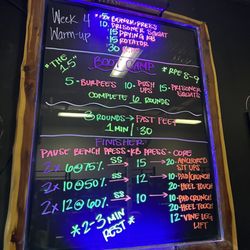 Week 4
Warm-up
*15 Bench Press
10 Prisoner Squat
15 Drying KB
15 Rotator
30
"The 45"
Boot Camp
*RPE 8-9
5-Burpees 10 Push ups 15-Prisoner Squats
Complete 6 Rounds
3 Rounds → Fast Feet
1 min / 30
Finisher
Pause Bench Press - KB Press - Core
2x 6@75% SS 15 → 20 Anchored Sit ups
2x 10@50% SS 12 → 10 Pro Crunch
20 Heel Touch
2x 12@60% → 10 → 10 Pro Crunch
20 Heel Touch
12 Vine Leg Lift
*2-3 min Rest*